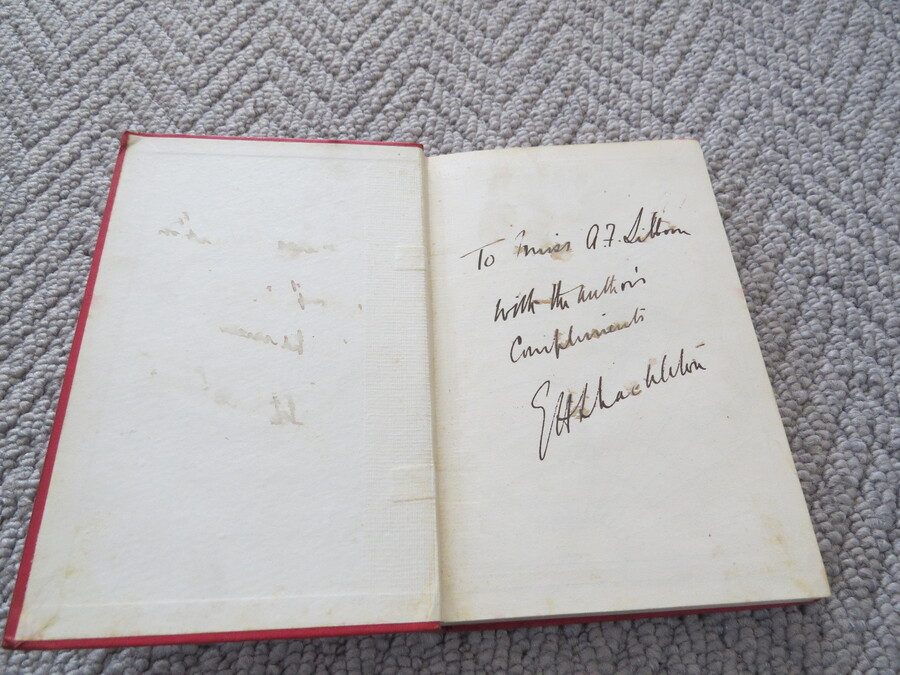 To Miss A. F.
With the author's
Compliments
EHShackleton